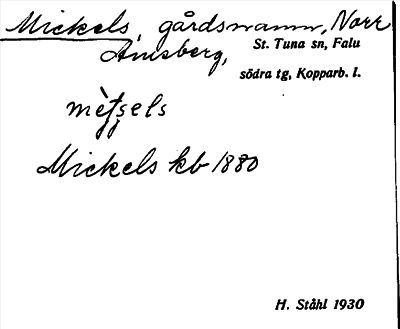 Mickels, gårdsnamn, Norr
Amsberg, St. Tuna sn, Falu
södra tg, Kopparb. l.
Mickels kb 1880
H. Ståhl 1930